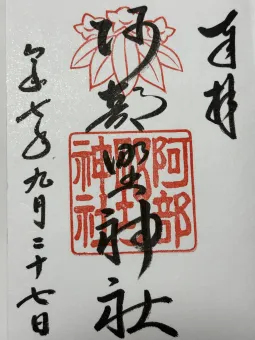 奉拝
阿部野神社
阿部野神社
令和七年九月二十七日